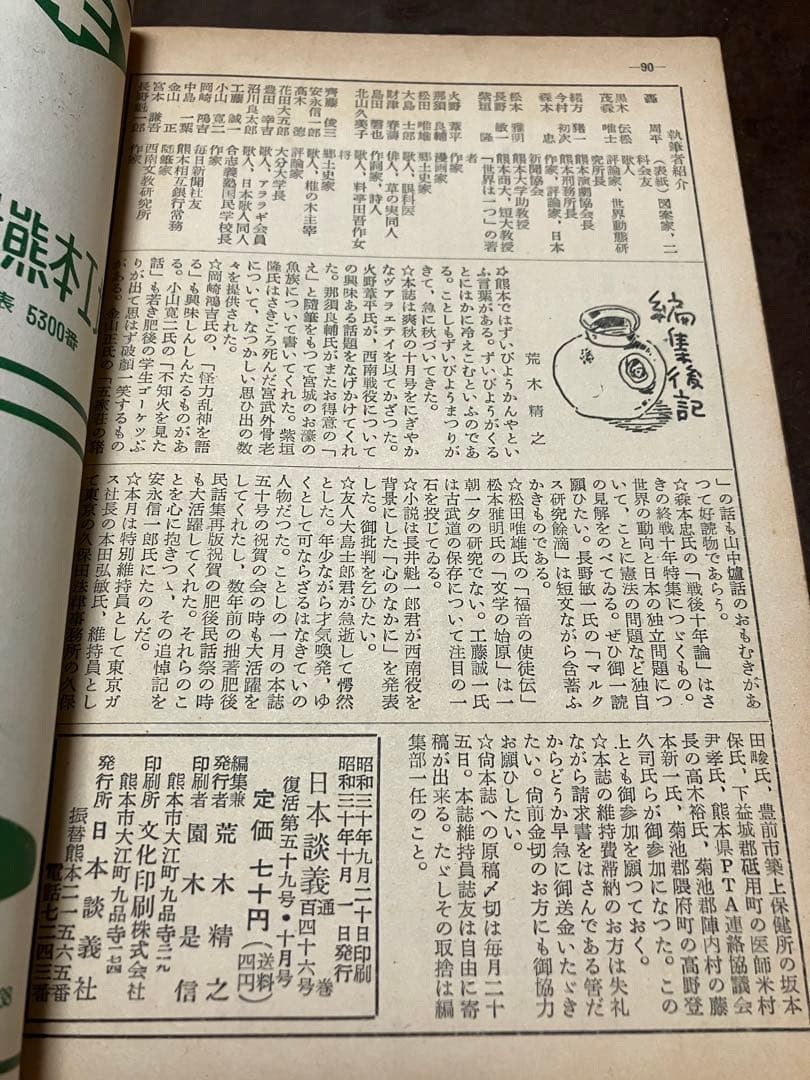 ―90―
執筆者紹介
轟 周平 (表紙)図案家、二
科会友
黒木 伝松 歌人
茂森 唯士 評論家、世界動態研
究所長
緒方 猪一 熊本演劇協会長
今村 初次 熊本刑務所長
森本 忠 作家、評論家、日本
新聞協会
松本 雅明 熊本大学助教授
長野 敏一 熊本商大、短大教授
紫垣 隆 「世界は一つ」の著
者
火野 葦平 作家
那須 良輔 漫画家
松田 唯雄 郷土史家
大島 士郎 歌人、眼科医
財津 春濤 俳人、草の実同人
島田 磬也 作詞家、詩人
北山久美子 歌人、料亭田吾作女
将
齊藤 俊三 郷土史家
安永信一郎 歌人、椎の木主宰
高木 徳 評論家
花田大五郎 大分大学長
豊田 幸吉 歌人、アララギ会員
沼川良太郎 歌人、日本歌人同人
工藤 誠一 合志義塾国民学校長
小山 寛二 作家
岡崎 鴻吉 毎日新聞社友
中島 一葉 熊本相互銀行常務
金山 正 随筆家
宮本 謙吾 西南文教研究所
長野魁一郎 作家
編集後記
荒木精之
☆熊本ではずいびようかんやとい
ふ言葉がある。ずいびようがくる
とにはかに冷えこむといふのであ
る。ことしもずいびようまつりが
きて、急に秋づいてきた。
☆本誌は爽秋の十月号をにぎやか
なヴアラエテイを以てかざつた。
火野葦平氏が、西南戦役について
の興味ある話題をなげかけてくれ
た。那須良輔氏がまたお得意の「
え」と随筆をもつて宮城のお濠の
魚族について書いてくれた。紫垣
隆氏はさきごろ死んだ宮武外骨老
について、なつかしい思ひ出の数
々を提供された。
☆岡崎鴻吉氏の、「怪力乱神を語
る」も興味しんしんたるものがあ
る。小山寛二氏の「不知火を見た
話」も若き肥後の学生ゴーケツぶ
りが出て思はず破顔一笑するもの
がある。金山正氏の「五家荘の路
」の話も山中爐話のおもむきがあ
つて好読物であらう。
☆森本忠氏の「戦後十年論」はさ
きの終戦十年特集につゞくもの。
世界の動向と日本の独立問題につ
いて、ことに憲法の問題など独自
の見解をのべてゐる。ぜひ御一読
願ひたい。長野敏一氏の「マルク
ス研究餘滴」は短文ながら含蓄ふ
かきものである。
☆松田唯雄氏の「福音の使徒伝」
松本雅明氏の「文学の始原」は一
朝一夕の研究でない。工藤誠一氏
は古武道の保存について注目の一
石を投じてゐる。
☆小説は長井魁一郎君が西南役を
背景にした「心のなかに」を発表
した。御批判を乞ひたい。
☆友人大島士郎君が急逝して愕然
とした。年少ながら才気喚発、ゆ
くとして可ならざるはなきていの
人物だつた。ことしの一月の本誌
五十号の祝賀の会の時も大活躍を
してくれたし、数年前の拙著肥後
民話集再版祝賀の肥後民話祭の時
も大活躍してくれた。それらのこ
とを心に抱きつゝ、その追悼記を
安永信一郎氏にたのんだ。
☆本月は特別維持員として東京ガ
ス社長の本田弘敏氏、維持員とし
て東京の久保田法律事務所の久保
田畯氏、豊前市築上保健所の坂本
保氏、下益城郡砥用町の医師米村
尹孝氏、熊本県PTA連絡協議会
長の高木裕氏、菊池郡陣内村の藤
本新一氏、菊池郡隈府町の高野登
久司氏らが御参加になつた。この
上とも御参加を願つておく。
☆本誌の維持費滞納のお方は失礼
ながら請求書をはさんである筈だ
からどうか早急に御送金いたゞき
たい。尚前金切のお方にも御協力
お願ひしたい。
☆尚本誌への原稿〆切は毎月二十
五日。本誌維持員誌友は自由に寄
稿が出来る。たゞしその取捨は編
集部一任のこと。
昭和三十年九月二十日印刷
昭和三十年十月 一日発行
日本談義 通巻百四十六号
復活第五十九号・十月号
定価 七十円 (送料四円)
編集兼発行者 荒木精之
印刷者 園木是信
熊本市大江町九品寺二九
印刷所 文化印刷株式会社
熊本市大江町九品寺一七四
発行所 日本談義社
振替熊本二一五六五番
電話七二四三番
熊本工
表 5300番